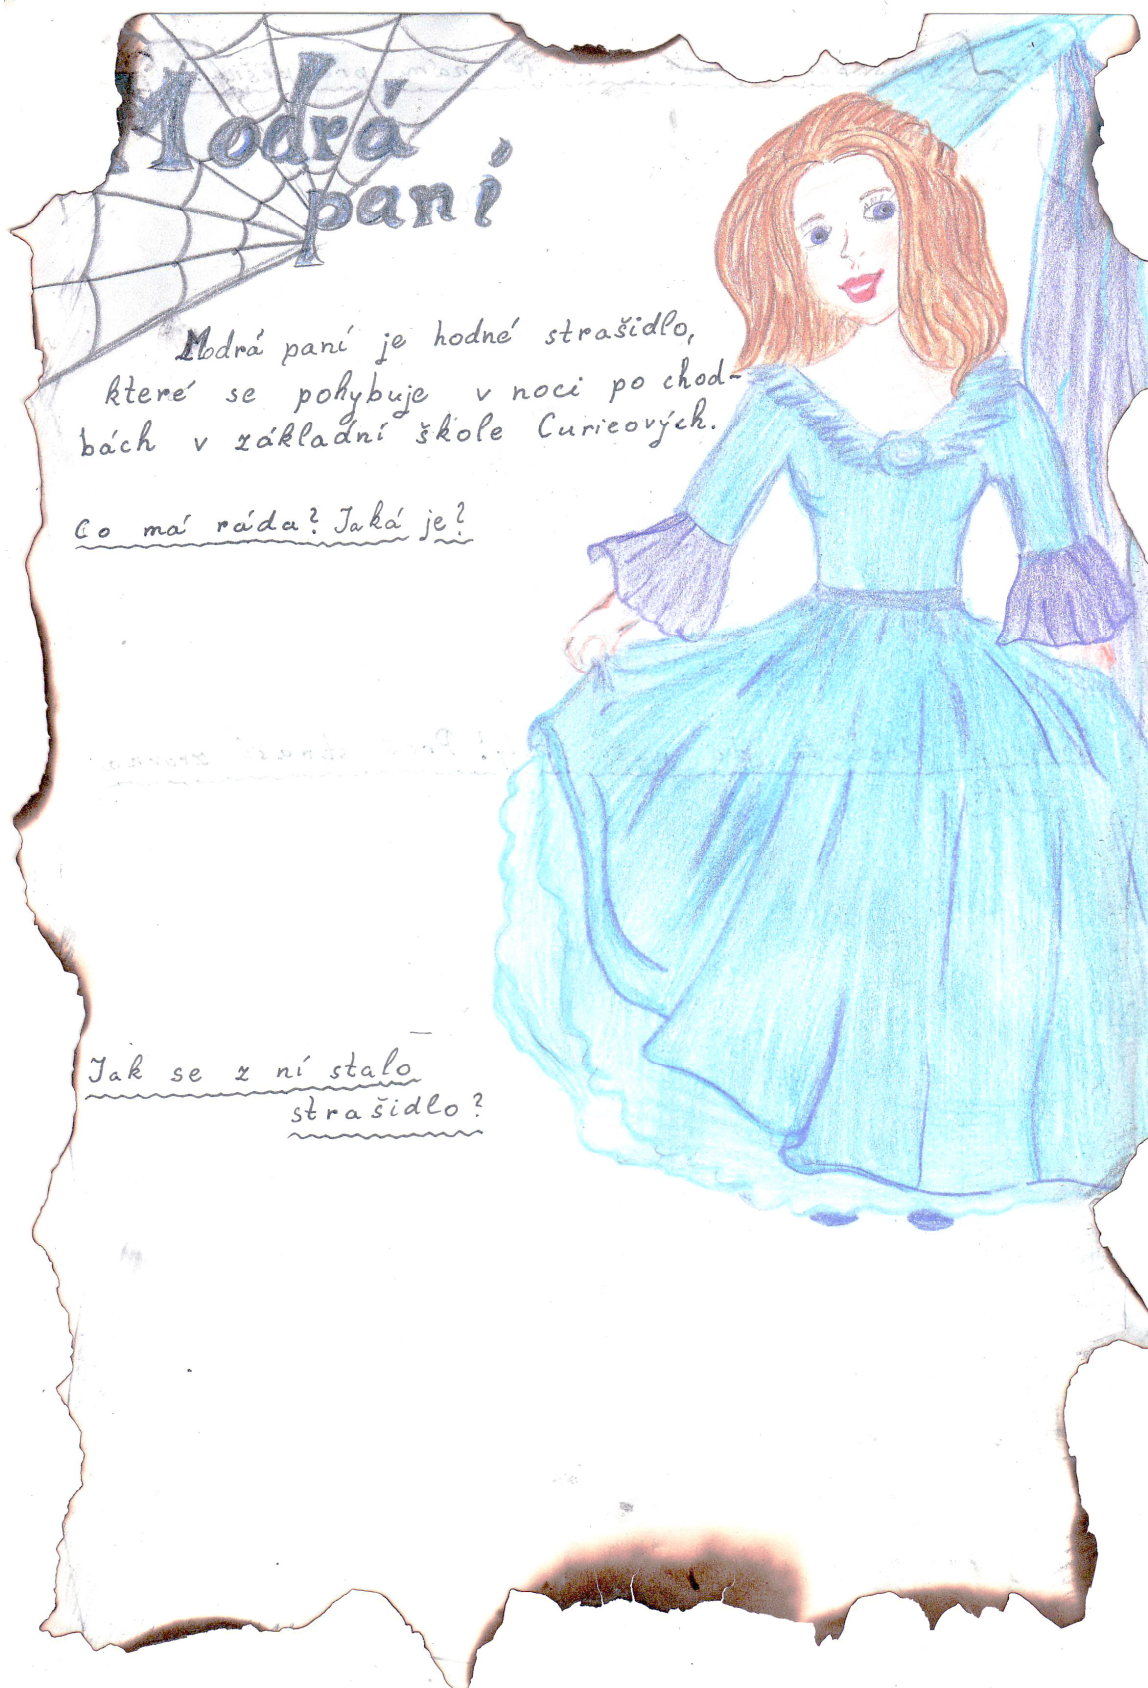 Modrá
paní
Modrá paní je hodné strašidlo,
které se pohybuje v noci po chod-
bách v základní škole Curieových.
Co má ráda? Jaká je?
Jak se z ní stalo
strašidlo?